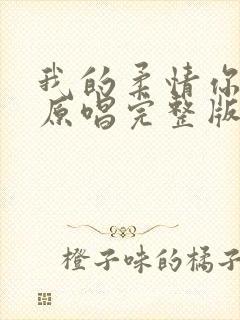 我的柔情你
原唱完整版
橙子味的橘子